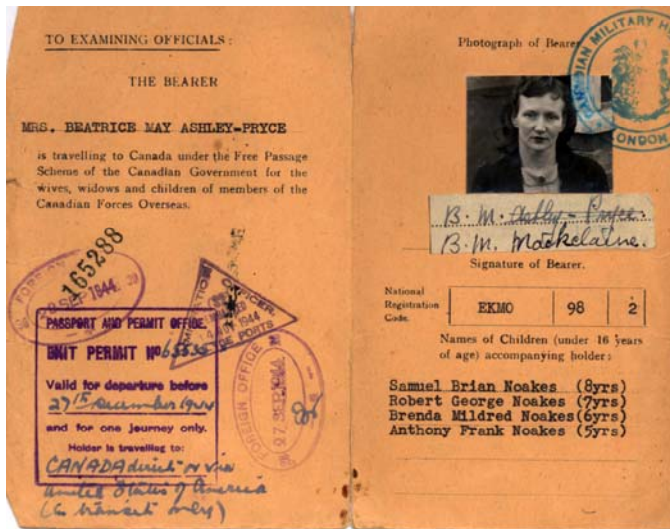 TO EXAMINING OFFICIALS:
THE BEARER
MRS. BEATRICE MAY ASHLEY-PRYCE
is travelling to Canada under the Free Passage
Scheme of the Canadian Government for the
wives, widows and children of members of the
Canadian Forces Overseas.
165288
FOREIGN
SEP 1944
IMMIGRATION OFFICER
1944
PORTS
PASSPORT AND PERMIT OFFICE.
EXIT PERMIT Nº 65535
Valid for departure before
27TH December 1944
and for one journey only.
Holder is travelling to:
CANADA direct or via
United States of America
(in transit only)
FOREIGN OFFICE
27 SEP 1944
Photograph of Bearer
CANADIAN MILITARY
LONDON
B. M. Ashley-Pryce.
B. M. Mackelaine.
Signature of Bearer.
National
Registration
Code.
EKMO 98 2
Names of Children (under 16 years
of age) accompanying holder:
Samuel Brian Noakes (8yrs)
Robert George Noakes (7yrs)
Brenda Mildred Noakes(6yrs)
Anthony Frank Noakes (5yrs)